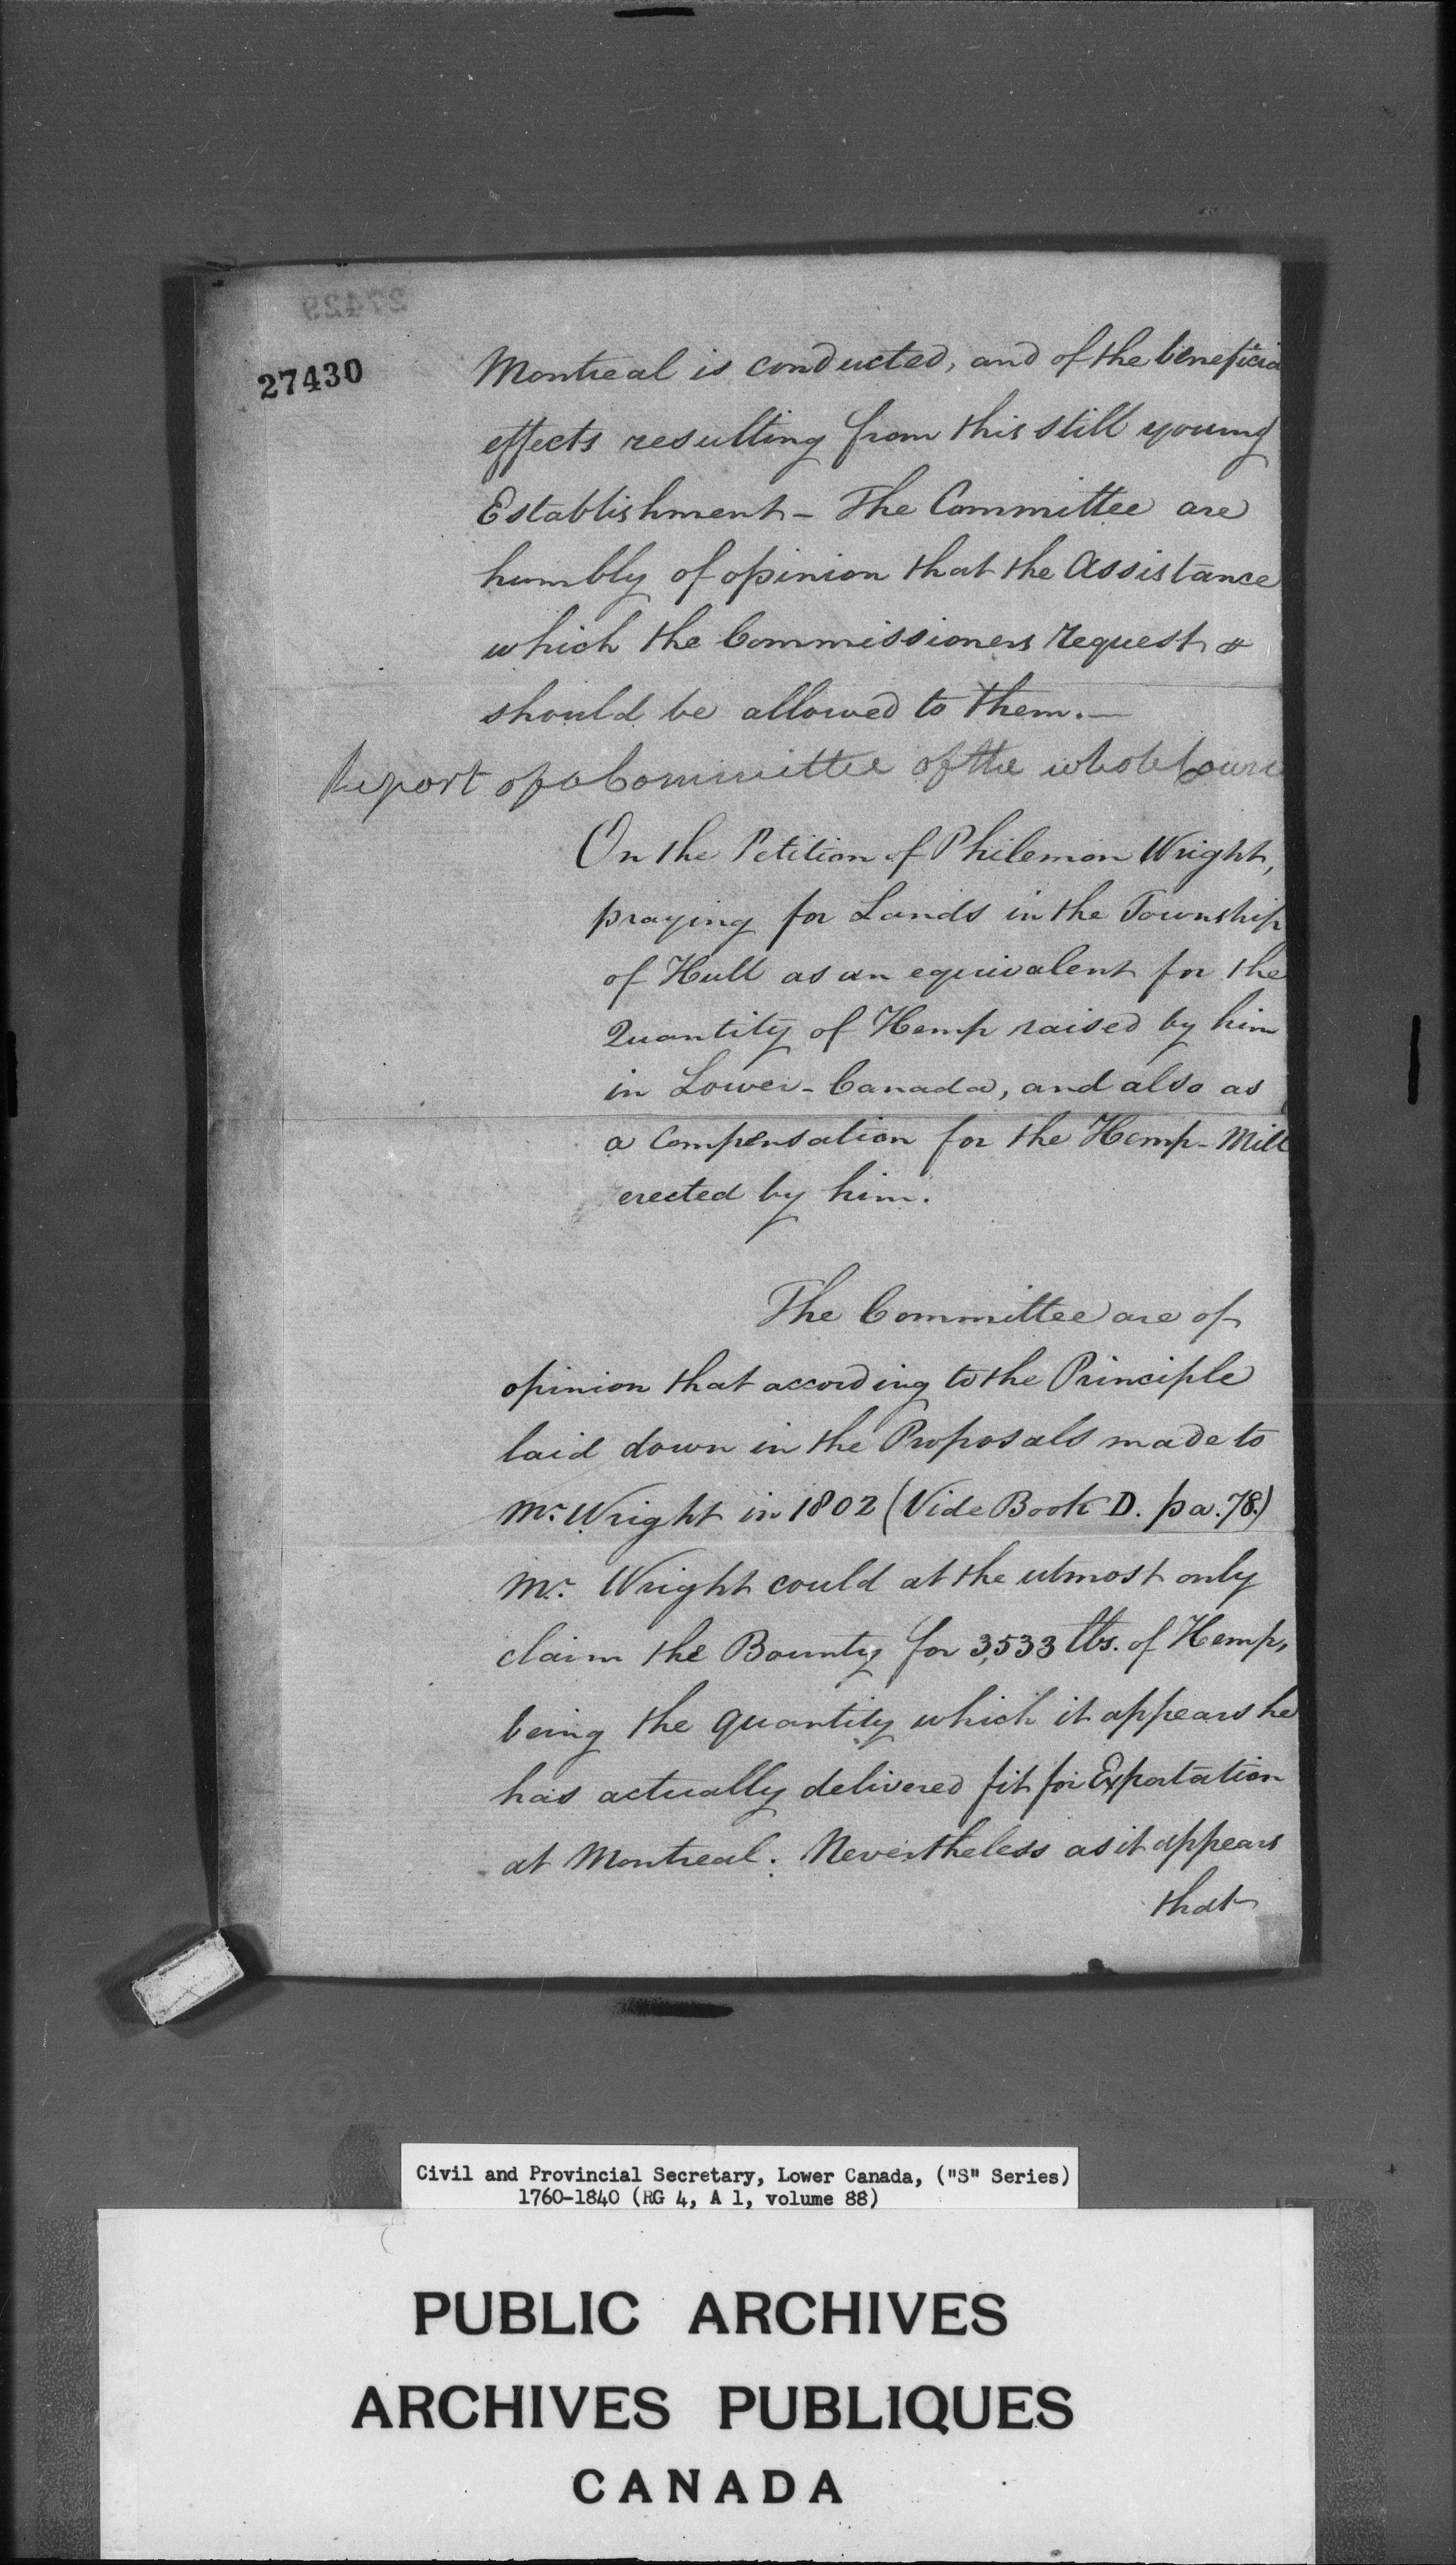 27429
27430
Montreal is conducted, and of the beneficia
effects resulting from this still young
Establishment - The Committee are
humbly of opinion that the Assistance
which the Commissioners request
should be allowed to them. —
Report of a Committee of the whole Counc
On the Petition of Philemon Wright,
praying for Lands in the Township
of Hull as an equivalent for the
Quantity of Hemp raised by him
in Lower-Canada, and also as
a Compensation for the Hemp-Mill
erected by him.
The Committee are of
opinion that according to the Principle
laid down in the Proposals made to
Mr. Wright in 1802 (Vide Book D. pa. 78.)
Mr. Wright could at the utmost only
claim the Bounty for 3,533 lbs. of Hemp,
being the quantity which it appears he
has actually delivered fit for Exportation
at Montreal. Nevertheless as it appears
that
Civil and Provincial Secretary, Lower Canada, ("S" Series)
1760-1840 (RG 4, A 1, volume 88)
PUBLIC ARCHIVES
ARCHIVES PUBLIQUES
CANADA